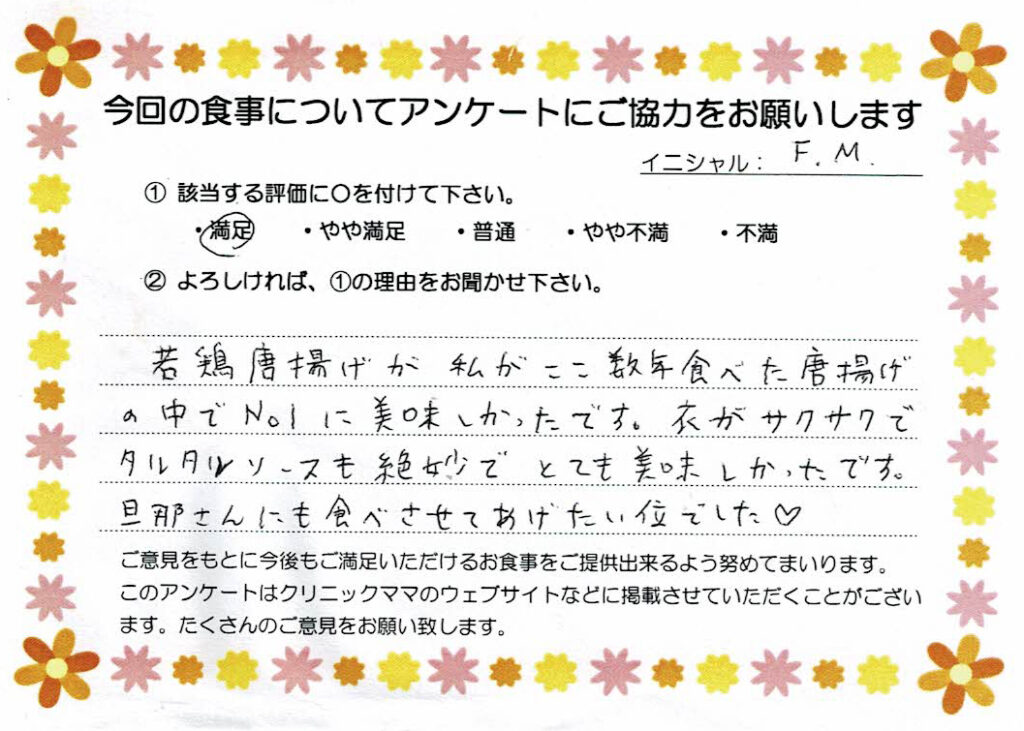 今回の食事についてアンケートにご協力をお願いします
イニシャル： F. M.
① 該当する評価に〇を付けて下さい。
・満足 ・やや満足 ・普通 ・やや不満 ・不満
② よろしければ、①の理由をお聞かせ下さい。
若鶏唐揚げが 私がここ数年食べた唐揚げ
の中でNo1に美味しかったです。衣がサクサクで
タルタルソースも絶妙で とても美味しかったです。
旦那さんにも食べさせてあげたい位でした♡
ご意見をもとに今後もご満足いただけるお食事をご提供出来るよう努めてまいります。
このアンケートはクリニックママのウェブサイトなどに掲載させていただくことがござい
ます。たくさんのご意見をお願い致します。